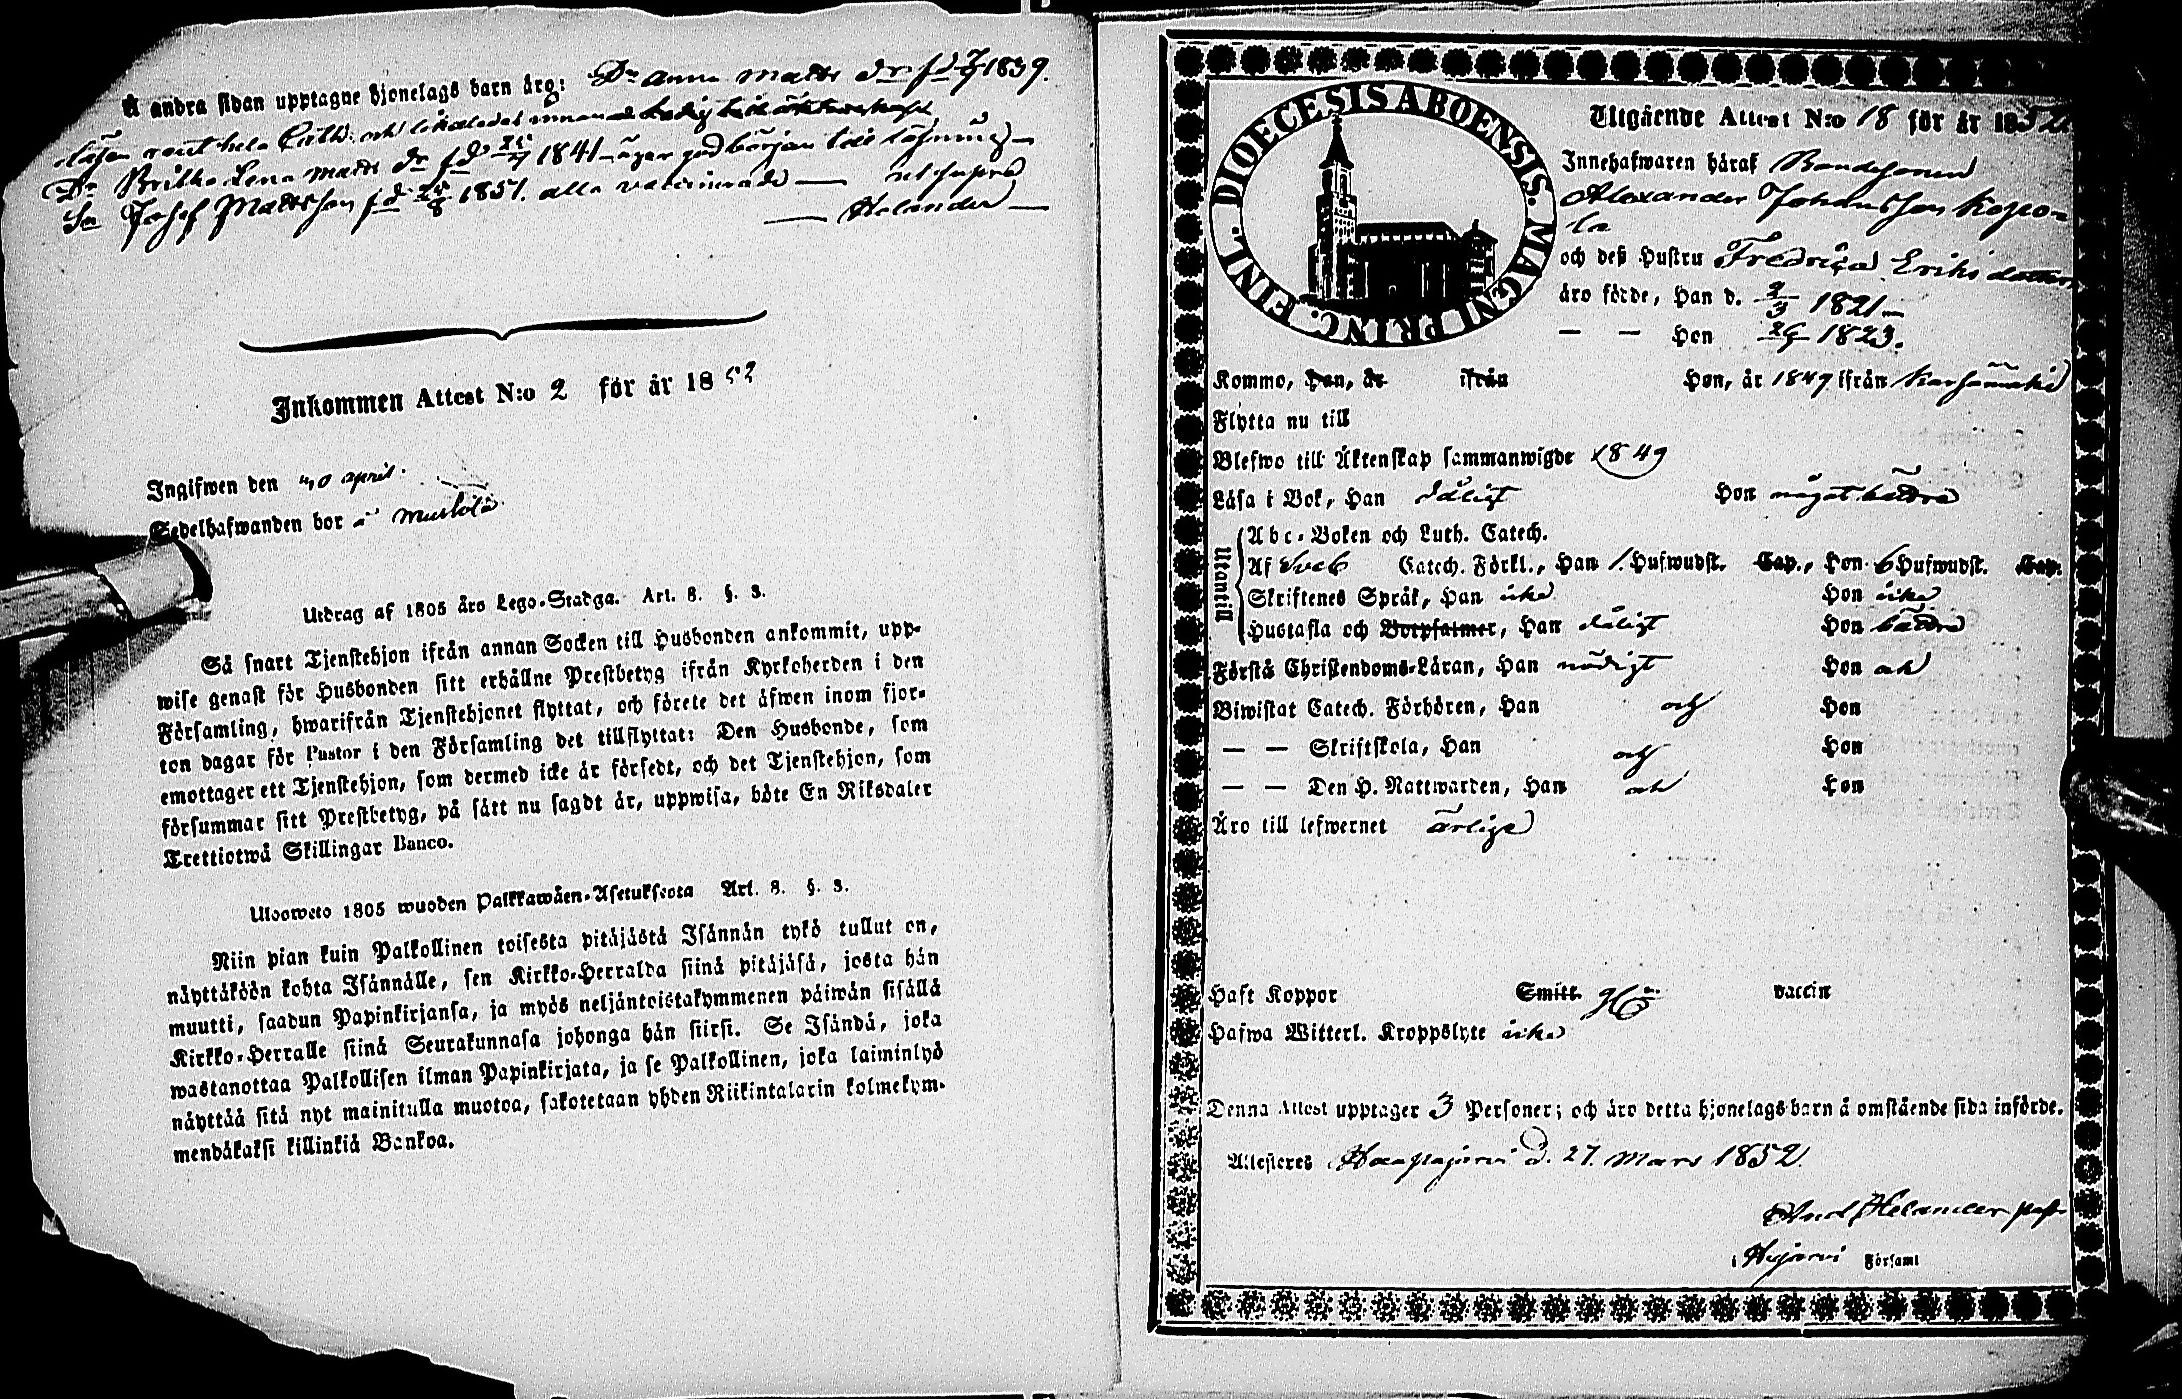 Å andra sidan upptagne hjonelags barn äro: Dr Anna Matts dr fd 7/9 1839.
Dr Britha Lena Matts dr fd 1841 äger god början till läsning
Sn Josef Mattsson fd 1851. alla vaccinerade — ut supra
— Helander —
Inkommen Attest N:o 2 för år 1852
Ingifwen den 30 april
Sedelhafwanden bor å
Utdrag af 1805 års Lego-Stadga. Art. 8. §. 3.
Så snart Tjenstehjon ifrån annan Socken till Husbonden ankommit, upp-
wise genast för Husbonden sitt erhållne Prestbetyg ifrån Kyrkoherden i den
Församling, hwarifrån Tjenstehjonet flyttat, och förete det äfwen inom fjor-
ton dagar för Pastor i den Församling det tillflyttat: Den Husbonde, som
emottager ett Tjenstehjon, som dermed icke är försedt, och det Tjenstehjon, som
försummar sitt Prestbetyg, på sätt nu sagdt är, uppwisa, böte En Riksdaler
Trettiotwå Skillingar Banco.
Ulosweto 1805 wuoden Palkkawäen-Asetuksesta Art. 8. §. 3.
Niin pian kuin Palkollinen toisesta pitäjästä Isännän tykö tullut on,
näyttäköön kohta Isännälle, sen Kirkko-Herralda siinä pitäjäsä, josta hän
muutti, saadun Papinkirjansa, ja myös neljäntoistakymmenen päiwän sisällä
Kirkko-Herralle siinä Seurakunnasa johonga hän siirsi. Se Isändä, joka
wastanottaa Palkollisen ilman Papinkirjata, ja se Palkollinen, joka laiminlyö
näyttää sitä nyt mainitulla muotoa, sakotetaan yhden Riikintalarin kolmekym-
mendäkaksi killinkiä Bankoa.
DIOECESIS ABOENSIS. MAGNI PRINC. FINL.
Utgående Attest N:o 18 för år 1852
Innehafwaren häraf Bondesonen
Alexander Johansson Kopo-
la
och deß Hustru Fredrica Eriksdotter
äro födde, Han d. 2/3 1821
— — Hon 1823.
Kommo, Han, år ifrån Hon, år 1849 ifrån Karsämäki
Flytta nu till
Blefwo till Äktenskap sammanwigde 1849
Läsa i Bok, Han dåligt Hon något bättre
Utantill
Abc-Boken och Luth. Catech.
Af Sveb Catech. Förkl., Han 1 Hufwudst. Cap., Hon 6 Hufwudst. Cap.
Skriftenes Språk, Han icke Hon icke
Hustafla och Botpsalmer, Han dåligt Hon bättre
Förstå Christendoms-Läran, Han nödigt Hon och
Biwistat Catech. Förhören, Han och Hon
— — Skriftskola, Han och Hon
— — Den H. Nattwarden, Han och Hon
Äro till lefwernet ärlige
Haft Koppor Smitt. vaccin
Hafwa Witterl. Kroppslyte icke
Denna Attest upptager 3 Personer; och äro detta hjonelags barn å omstående sida införde.
Attesteres Haapajärvi d. 27. Mars 1852.
And. Helander past.
i Hpjärvi Församl